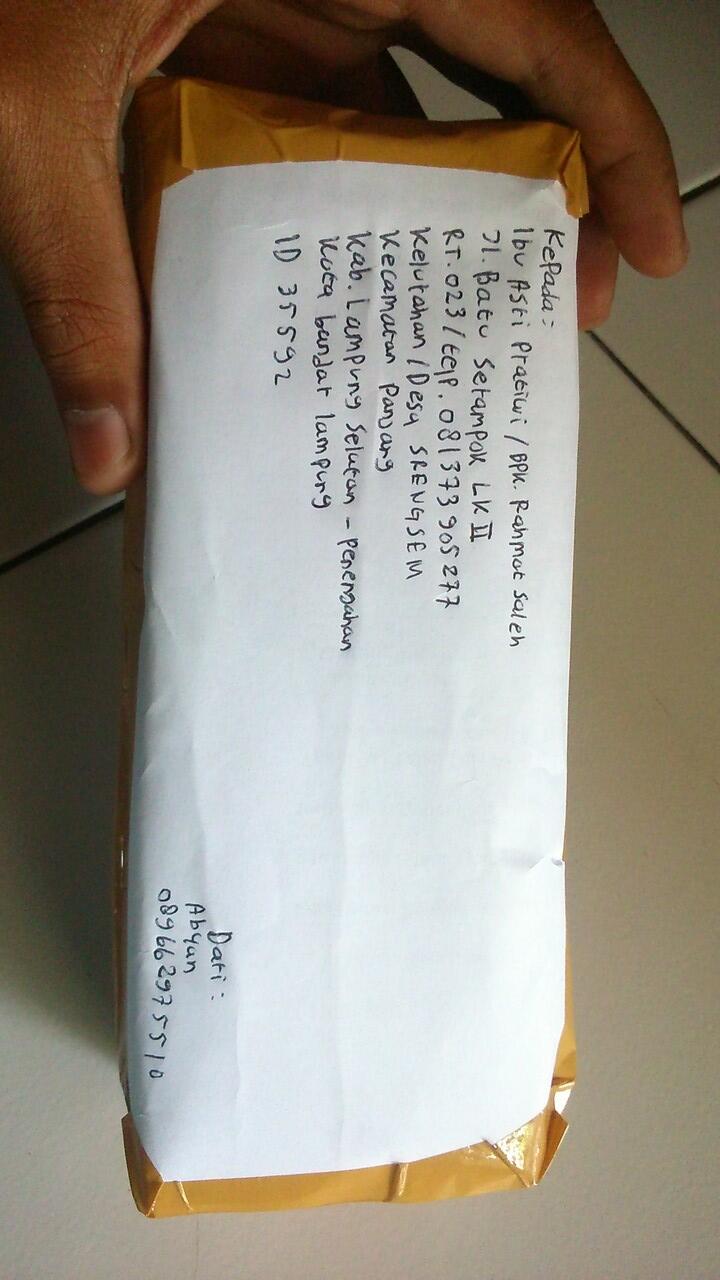 Kepada :
Ibu Asti Pratiwi / BPK. Rahmat Saleh
Jl. Batu Serampok LK II
RT. 023 / telp. 081373905277
Kelurahan / Desa SRENGSEM
Kecamatan Panjang
Kab. Lampung Selatan - Penengahan
Kota bandar lampung
ID 35592
Dari :
Abyan
089662975510